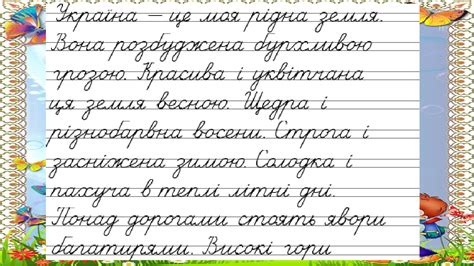 Україна – це моя рідна земля.
Вона розбуджена бурхливою
грозою. Красива і уквітчана
ця земля весною. Щедра і
різнобарвна восени. Строга і
засніжена зимою. Солодка і
пахуча в теплі літні дні.
Понад дорогами стоять явори
багатирями. Високі гори